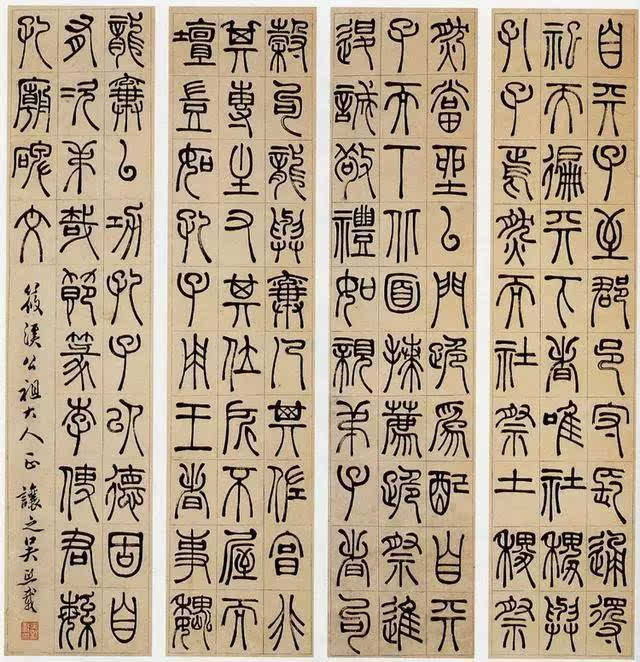 自天子至郡邑守長通得
祀而徧天下者唯社稷與
孔子焉然而社祭土稷祭
然當聖以門跪為配自天
子而下北面揀薦跪祭進
退誠敬禮如親弟子者句
穀句龍與棄乃其佐享非
其專主又其位所不屋而
壇豈如孔子用王者事巍
龍棄以功孔子以德固自
有次弟哉節篆李使君緐
孔廟碑文
筱溪公祖大人正 讓之吳熙載